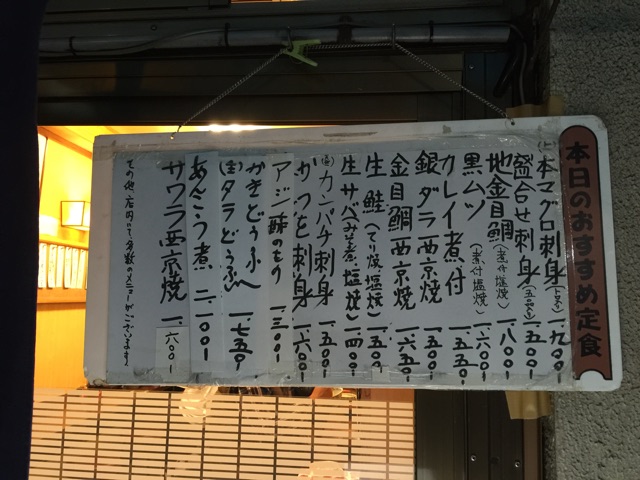 本日のおすすめ定食
(上)本マグロ刺身(トロ入) 一.九〇〇-
盛合せ刺身(五点盛) 一.五〇〇-
地金目鯛(煮付塩焼) 一.八〇〇-
黒ムツ(煮付塩焼) 一.六〇〇-
カレイ煮付 一.五五〇-
銀ダラ西京焼 一.六〇〇-
金目鯛西京焼 一.六五〇-
生鮭(てり焼塩焼) 一.五〇〇-
生サバ(みそ煮、塩焼) 一.四〇〇-
カンパチ刺身 一.五〇〇-
かつを刺身 一.六〇〇-
アジ酢のもの 一.三〇〇-
かきどうふ
(生)タラどうふ 一.七五〇-
あんこう煮 二.一〇〇-
サワラ西京焼 一.六〇〇-
その他、店内にて多数のメニューがございます。